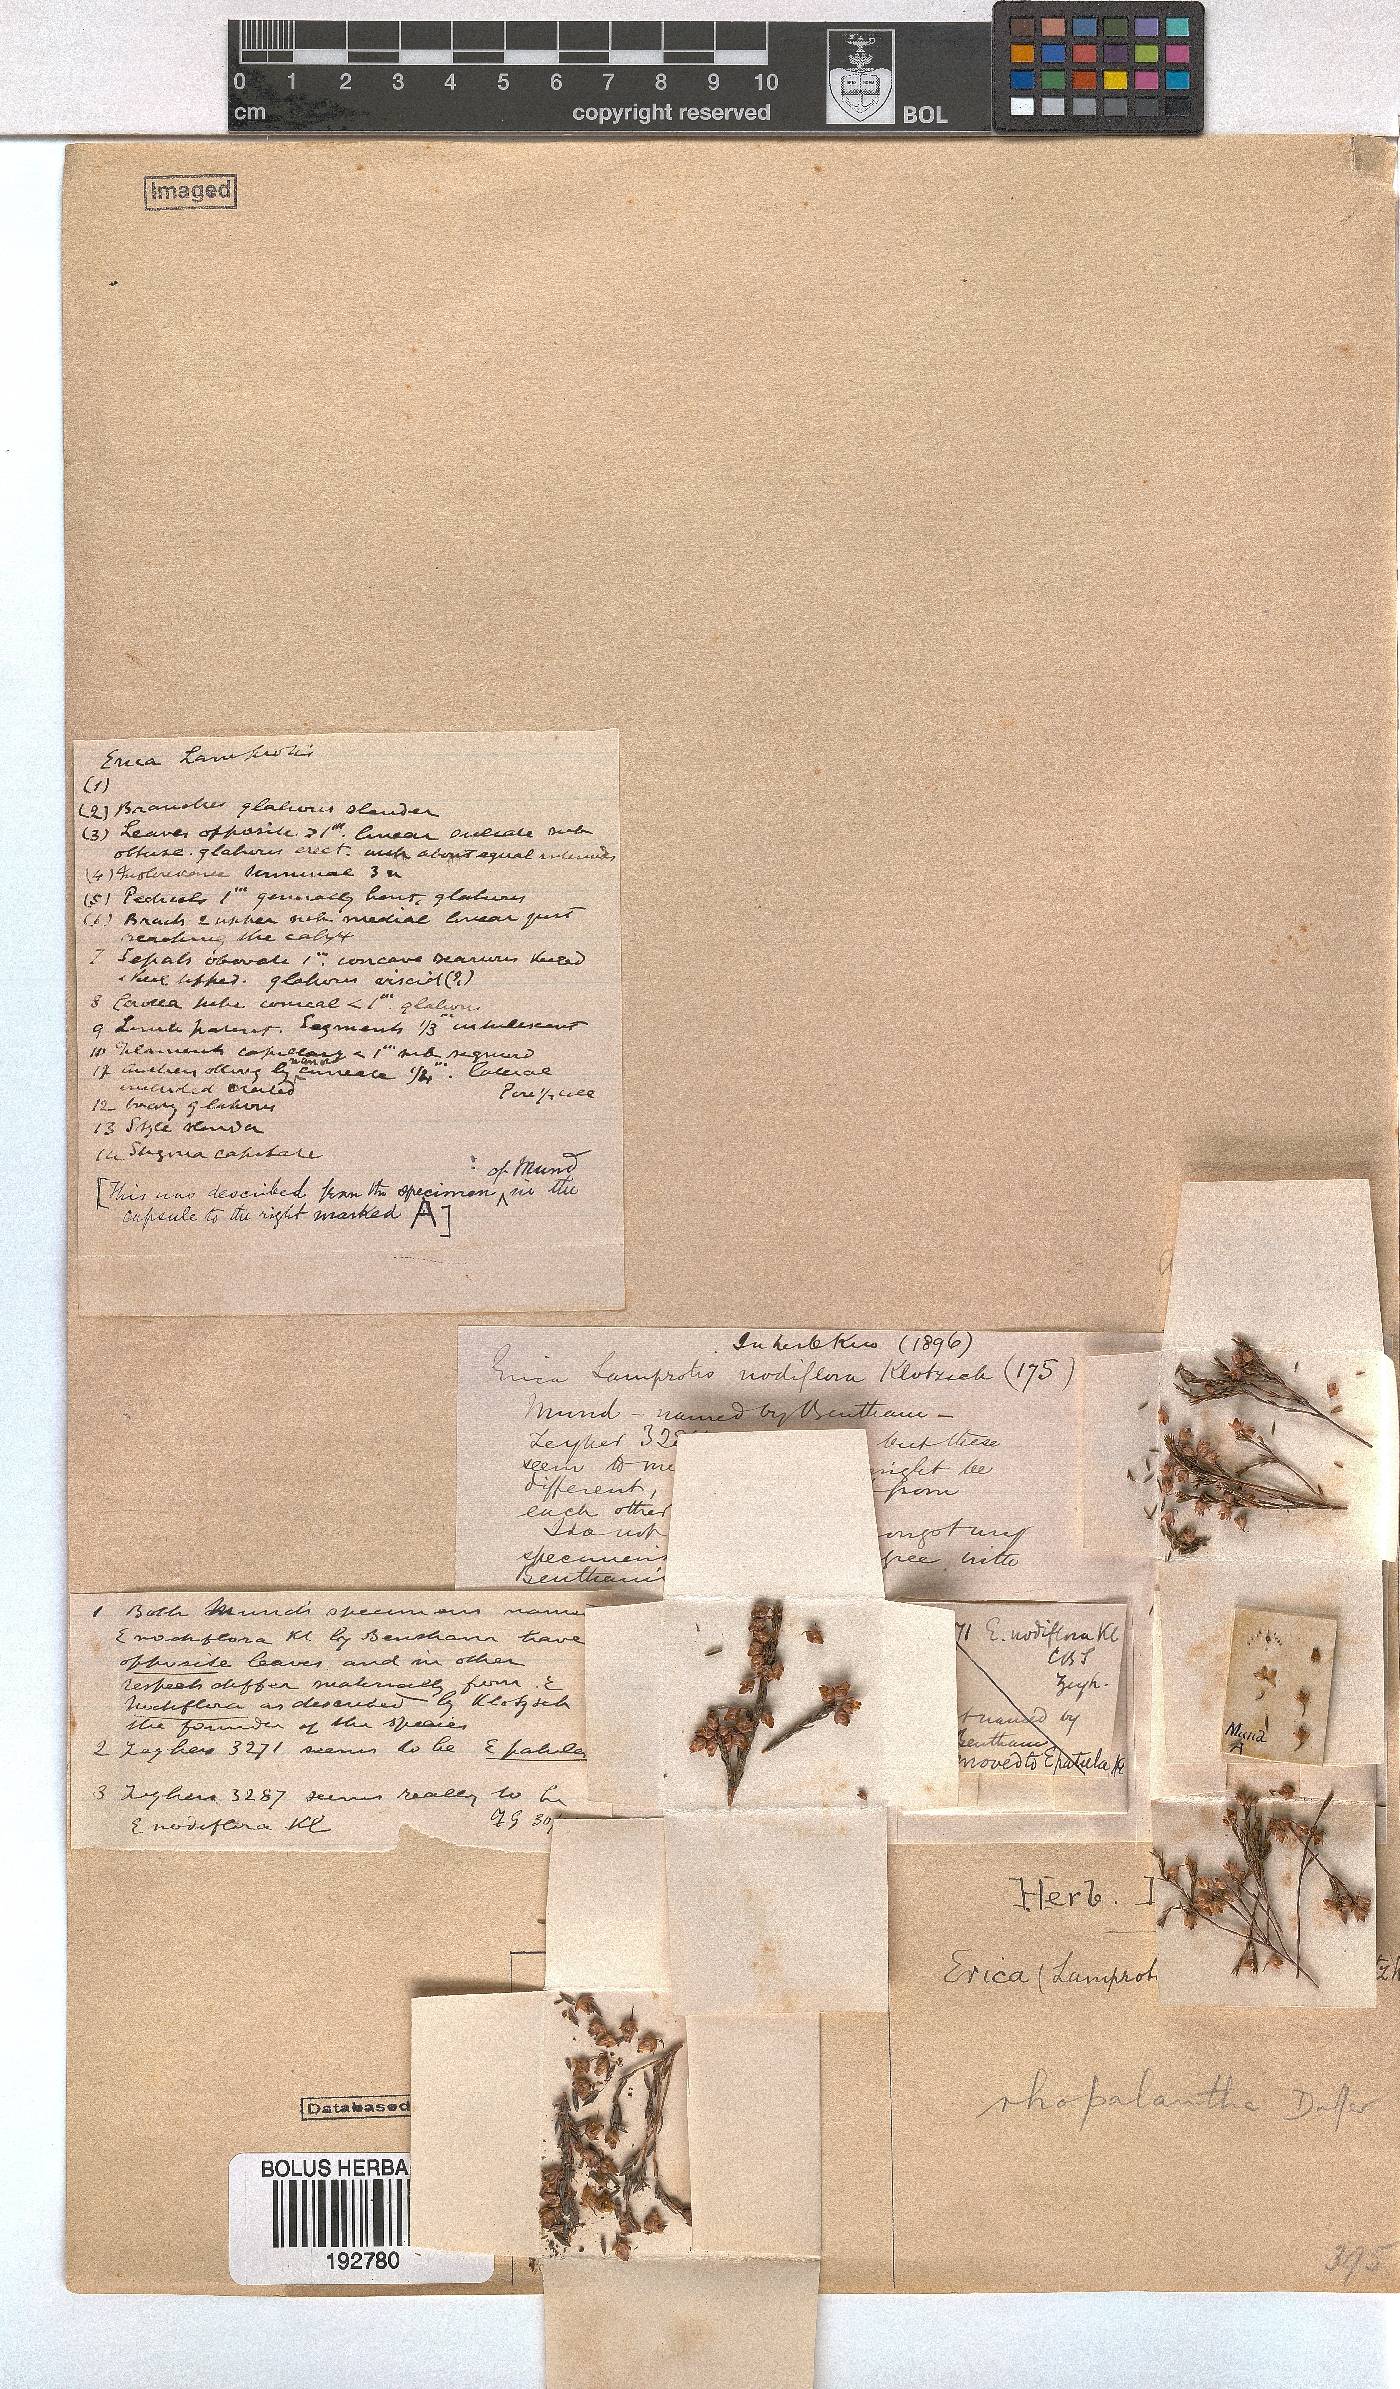 0 1 2 3 4 5 6 7 8 9 10
cm
copyright reserved
BOL
Imaged
Erica Lamprotis
(1)
(2) Branches glabrous slender
(3) Leaves opposite > 1''' linear sulcate sub
obtuse. glabrous erect. with about equal internodes
(4) Inflorescence terminal 3 n
(5) Pedicels 1''' generally bent, glabrous
(6) Bracts 2 upper sub medial linear just
reaching the calyx
7 Sepals obovate 1''' concave scarious keeled
keel tipped. glabrous viscid (?)
8 Corolla tube conical < 1''' glabrous
9 Limb patent. Segments 1/3'''
10 Filaments capillary < 1''' sub
11 Anthers oblong by cuneate 1/4'''. lateral
included crested Pore 1/2 cell
12 Ovary glabrous
13 Style slender
14 Stigma capitate
of Mund
[This was described from the specimen ^ in the
capsule to the right marked A]
In herb Kew (1896)
Erica Lamprotis nodiflora Klotzsch (175)
Mund – named by Bentham –
Zeyher 32 but these
seem to me might be
different, from
each other
I do not amongst my
specimens agree with
Bentham's
1 Both Mund's specimens name
E nodiflora Kl by Bentham have
opposite leaves and in other
respects differ materially from E
nodiflora as described by Klotzsch
the founder of the species
2 Zeyhers 3271 seems to be E patula
3 Zeyhers 3287 seems really to be
E nodiflora Kl
71 E. nodiflora Kl
CBS
Zeyh.
named by
Bentham
moved to E patula Kl
Mund
A
Herb.
Erica (Lamprot
rhopalantha Dulfer
Databased
BOLUS HERBA
192780
395